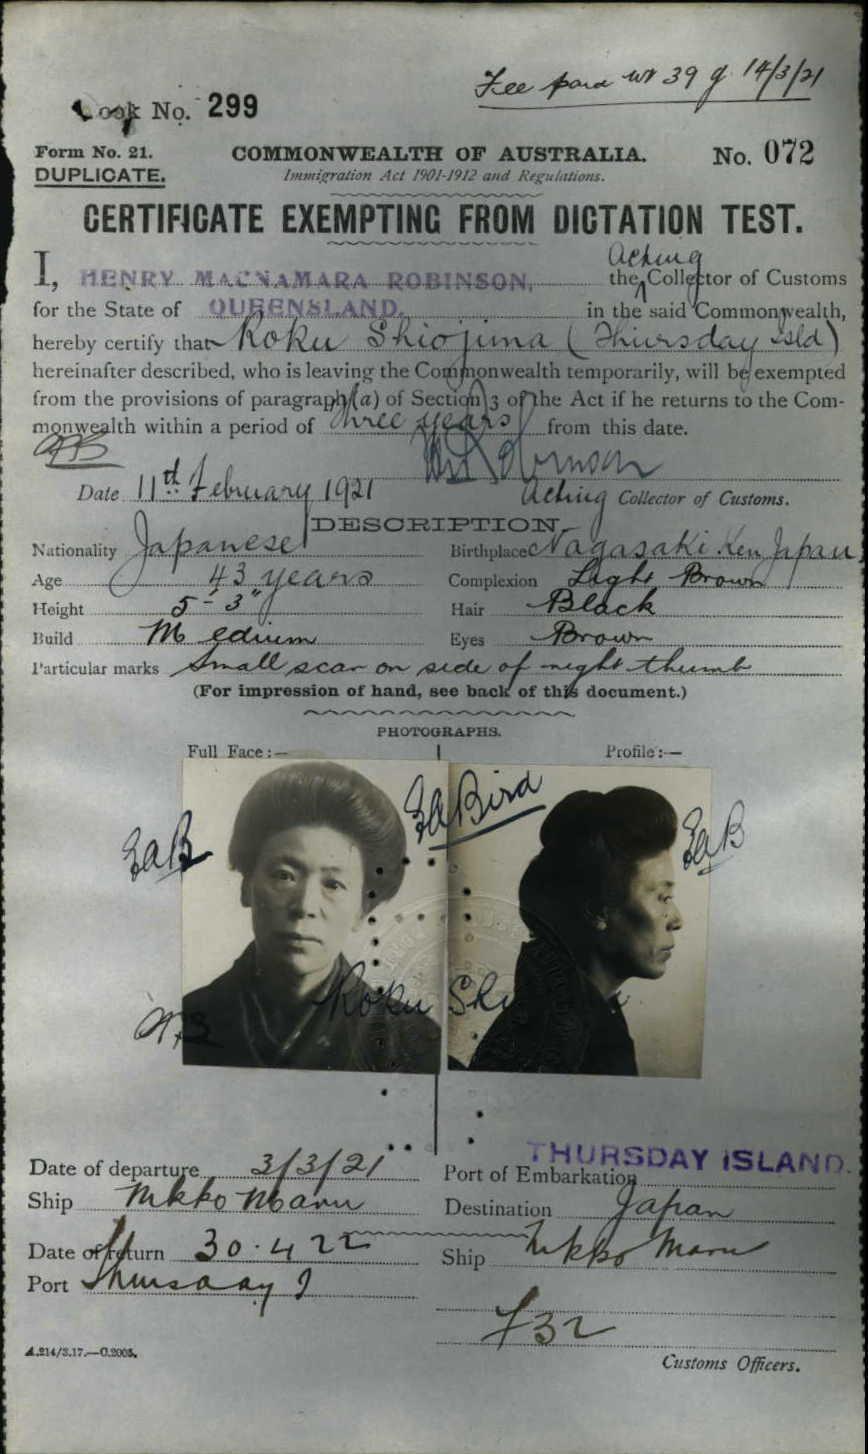 Fee paid 39 14/3/21
Book No. 299
Form No. 21.
COMMONWEALTH OF AUSTRALIA.
No. 072
DUPLICATE.
Immigration Act 1901-1912 and Regulations.
CERTIFICATE EXEMPTING FROM DICTATION TEST.
Acting
I, HENRY MACNAMARA ROBINSON, the Collector of Customs
for the State of QUEENSLAND. in the said Commonwealth,
hereby certify that Roku Shiojima (Thursday Isld)
hereinafter described, who is leaving the Commonwealth temporarily, will be exempted
from the provisions of paragraph (a) of Section 3 of the Act if he returns to the Com-
monwealth within a period of three years from this date.
Date 11th February 1921
Acting Collector of Customs.
DESCRIPTION
Nationality Japanese
Birthplace Nagasaki Ken Japan
Age 43 years
Complexion Light Brown
Height 5'-3"
Hair Black
Build Medium
Eyes Brown
Particular marks Small scar on side of right thumb
(For impression of hand, see back of this document.)
PHOTOGRAPHS.
Full Face:—
Profile:—
EaBird
EaB
EaB
Roku Shi
Date of departure 3/3/21
Port of Embarkation THURSDAY ISLAND.
Ship Nikko Maru
Destination Japan
Date of return 30.4 22
Ship Nikko Maru
Port Thursday I
A.214/3.17.—C.2005.
Customs Officers.